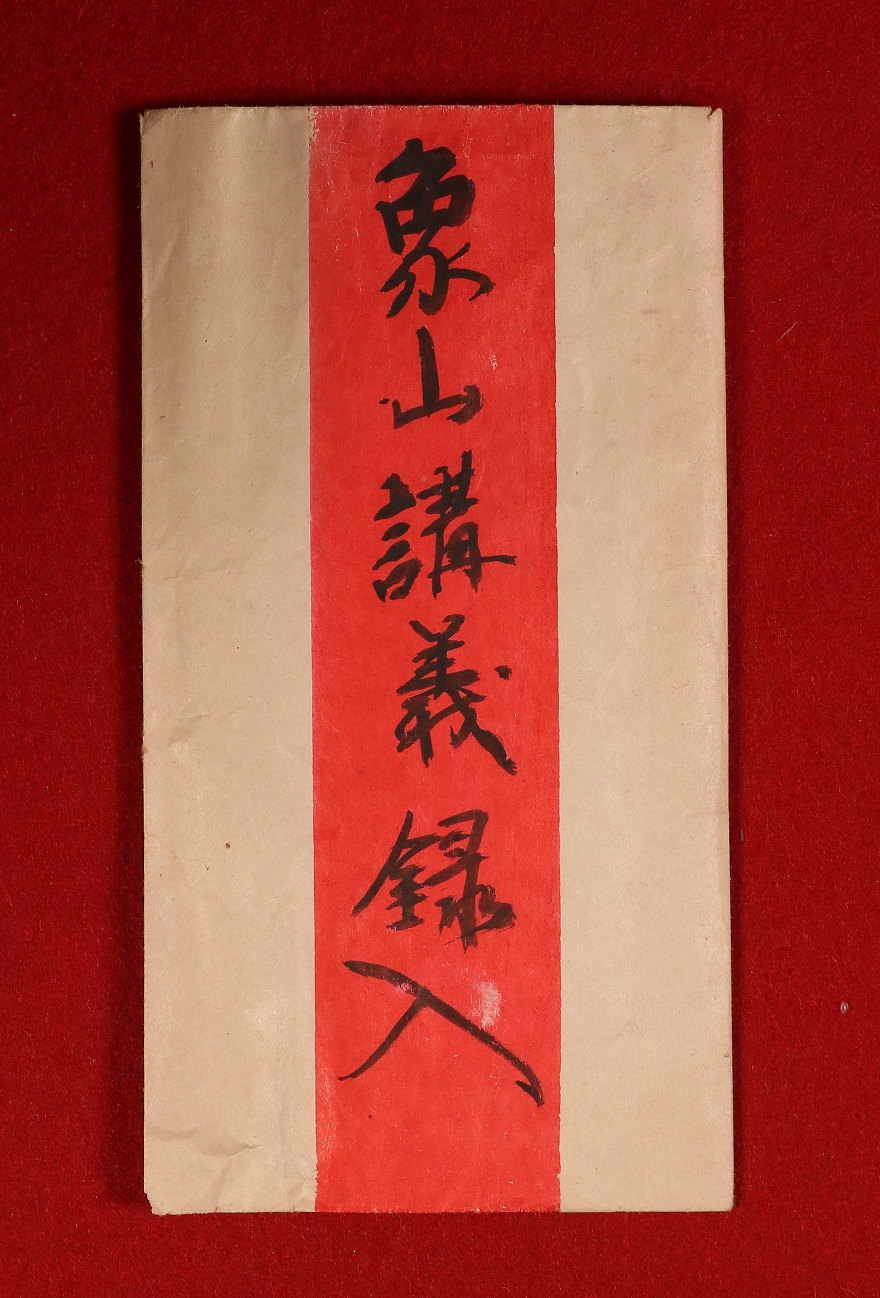 象山講義録入